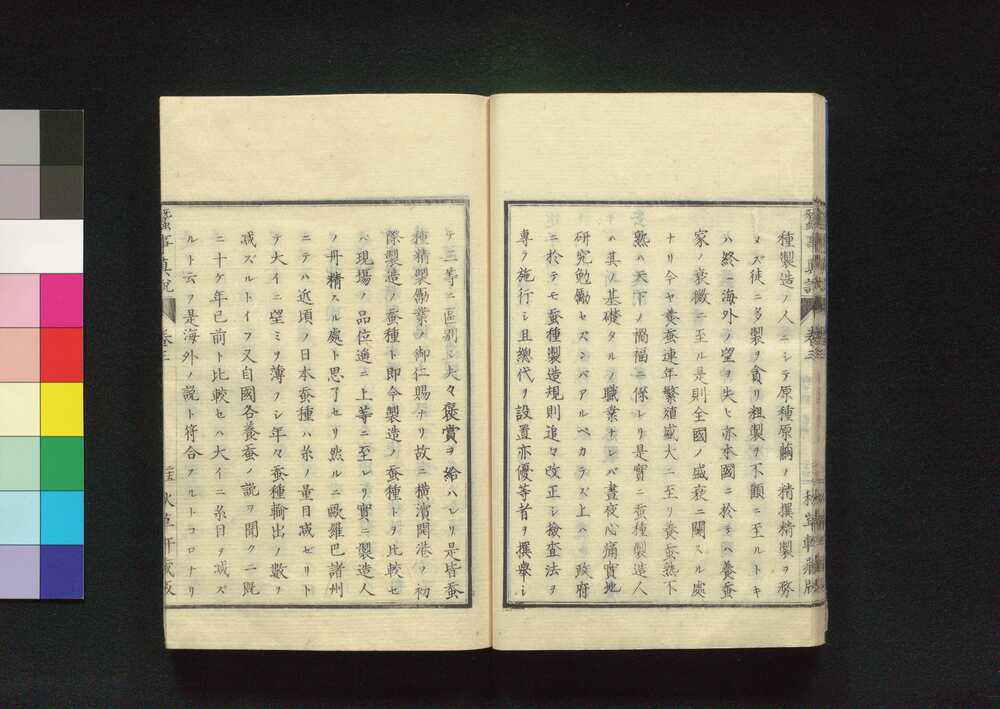 種製造ノ人ニシテ原種原繭ノ精撰精製ヲ務
メズ徒ニ多製ヲ貪リ粗製ヲ不顧ニ至ルトキ
ハ終ニ海外ノ望ヲ失ヒ亦本國ニ於モハ養蚕
家ノ衰微ニ至ル是則全國ノ盛衰ニ關スル處
ナリ今ヤ養蚕連年繁殖盛大ニ至リ養蚕熟下
熟ハ天下ノ禍福ニ係レリ是實ニ蚕種製造人
ハ其ノ基礎タルノ職業ナレバ晝夜心痛實地
研究勉勵セズンバアルベカラズ上ハ政府
ニ於テモ蚕種製造規則追々改正シ檢査法ヲ
專ラ施行シ且總代ヲ設置亦優等者ヲ撰擧シ
テ三等ニ區別シ夫々褒賞ヲ給ハレリ是皆蚕
種精製勵業ノ御仁賜ナリ故ニ横濱開港ノ初
際製造ノ蚕種ト即今製造ノ蚕種トヲ比較セ
バ現場ノ品位進ニ上等ニ至レリ實ニ製造人
ノ丹精スル處ト思了セリ然ルニ歐羅巴諸州
ニテハ近頃ノ日本蚕種ハ糸ノ量目減ゼリト
テ大イニ望ミヲ薄フシ年々蚕種輸出ノ數ヲ
減ズルトイフ又自國各養蚕ノ説ヲ聞クニ既
ニ十ケ年已前ト比較セハ大イニ糸目ヲ減ズ
ルト云フ是海外ノ説ト符合スルトコロナリ
蚕事眞説 卷三